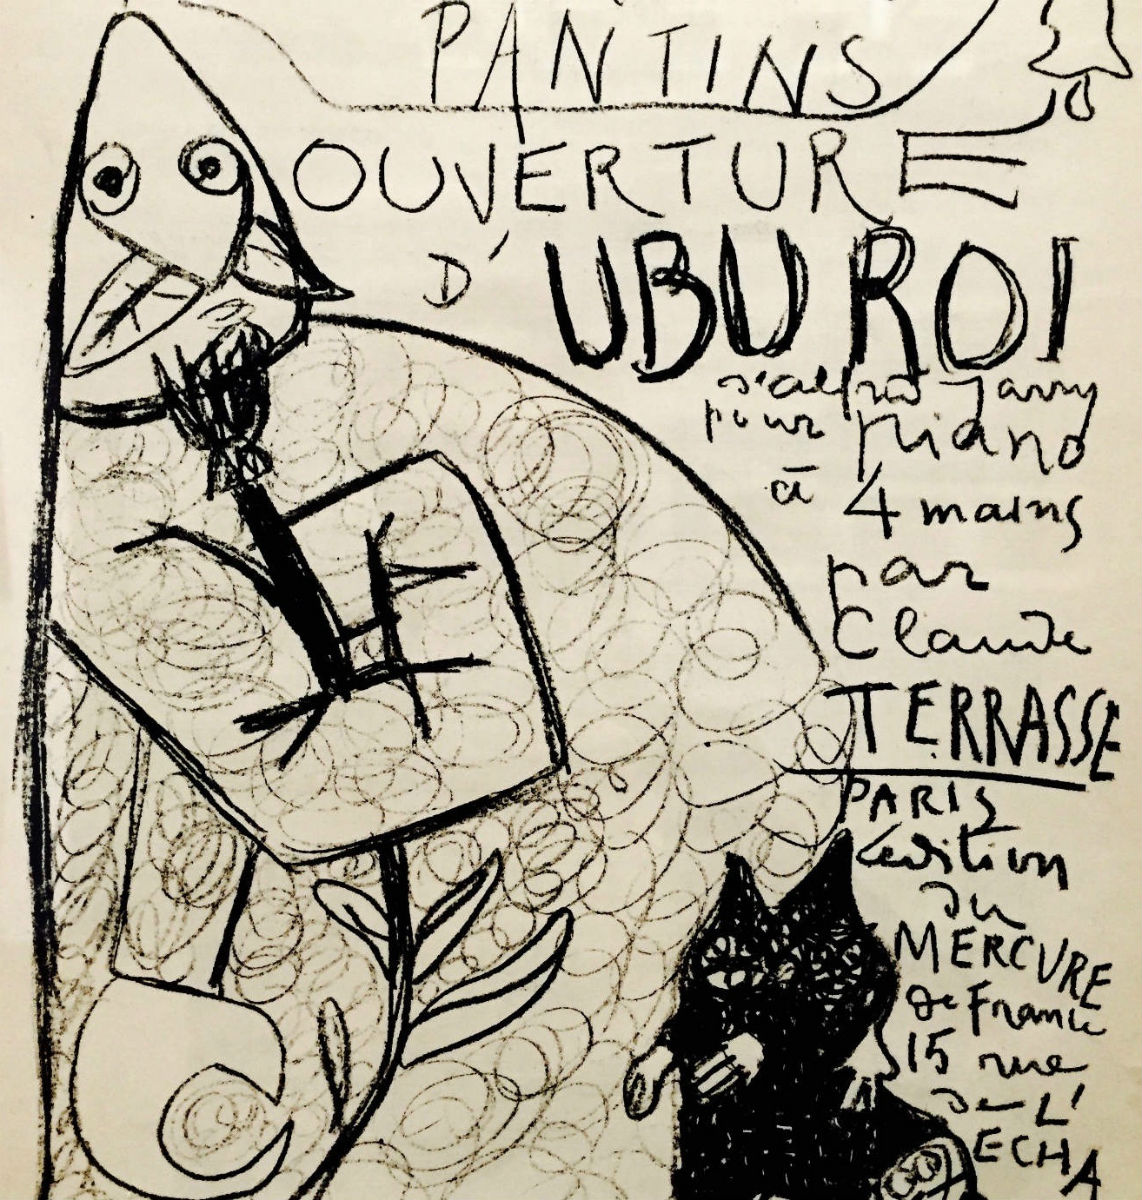 PANTINS
OUVERTURE
D'UBU ROI
d'alfred Jarry
pour piano
à 4 mains
par
Claude
TERRASSE
PARIS
édition
du
MERCVRE
de France
15 rue
de L'
ECHA